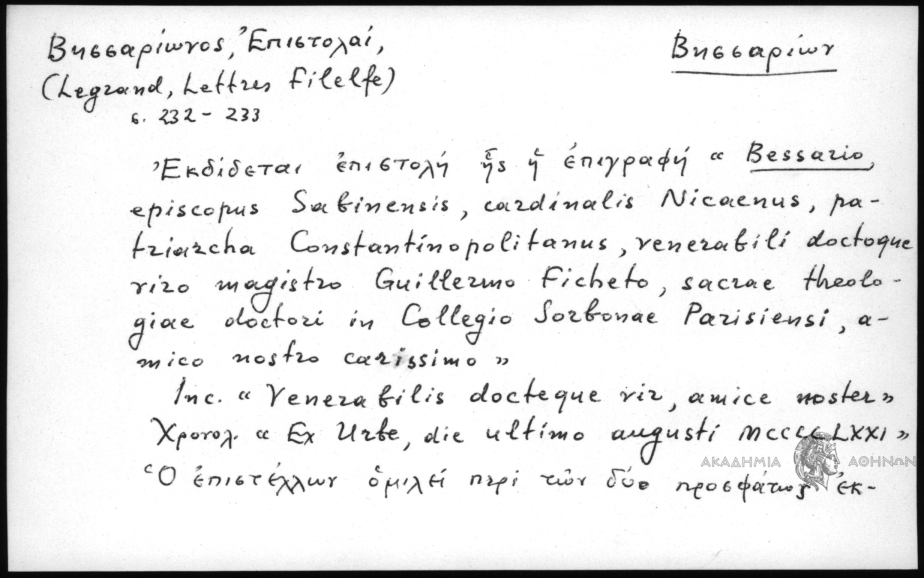 Βησσαρίωνος, Ἐπιστολαί,
Βησσαρίων
(Legrand, Lettres Filelfe)
σ. 232 - 233
Ἐκδίδεται ἐπιστολή ἧς ἡ ἐπιγραφή « Bessario,
episcopus Sabinensis, cardinalis Nicaenus, pa-
triarcha Constantinopolitanus, venerabili doctoque
viro magistro Guillermo Ficheto, sacrae theolo-
giae doctori in Collegio Sorbonae Parisiensi, a-
mico nostro carissimo »
Inc. « Venerabilis docteque vir, amice noster »
Χρονολ. « Ex Urbe, die ultimo augusti MCCCCLXXI »
ΑΚΑΔΗΜΙΑ ΑΘΗΝΩΝ
Ὁ ἐπιστέλλων ὁμιλεί περί τῶν δύο προσφάτως ἐκ-